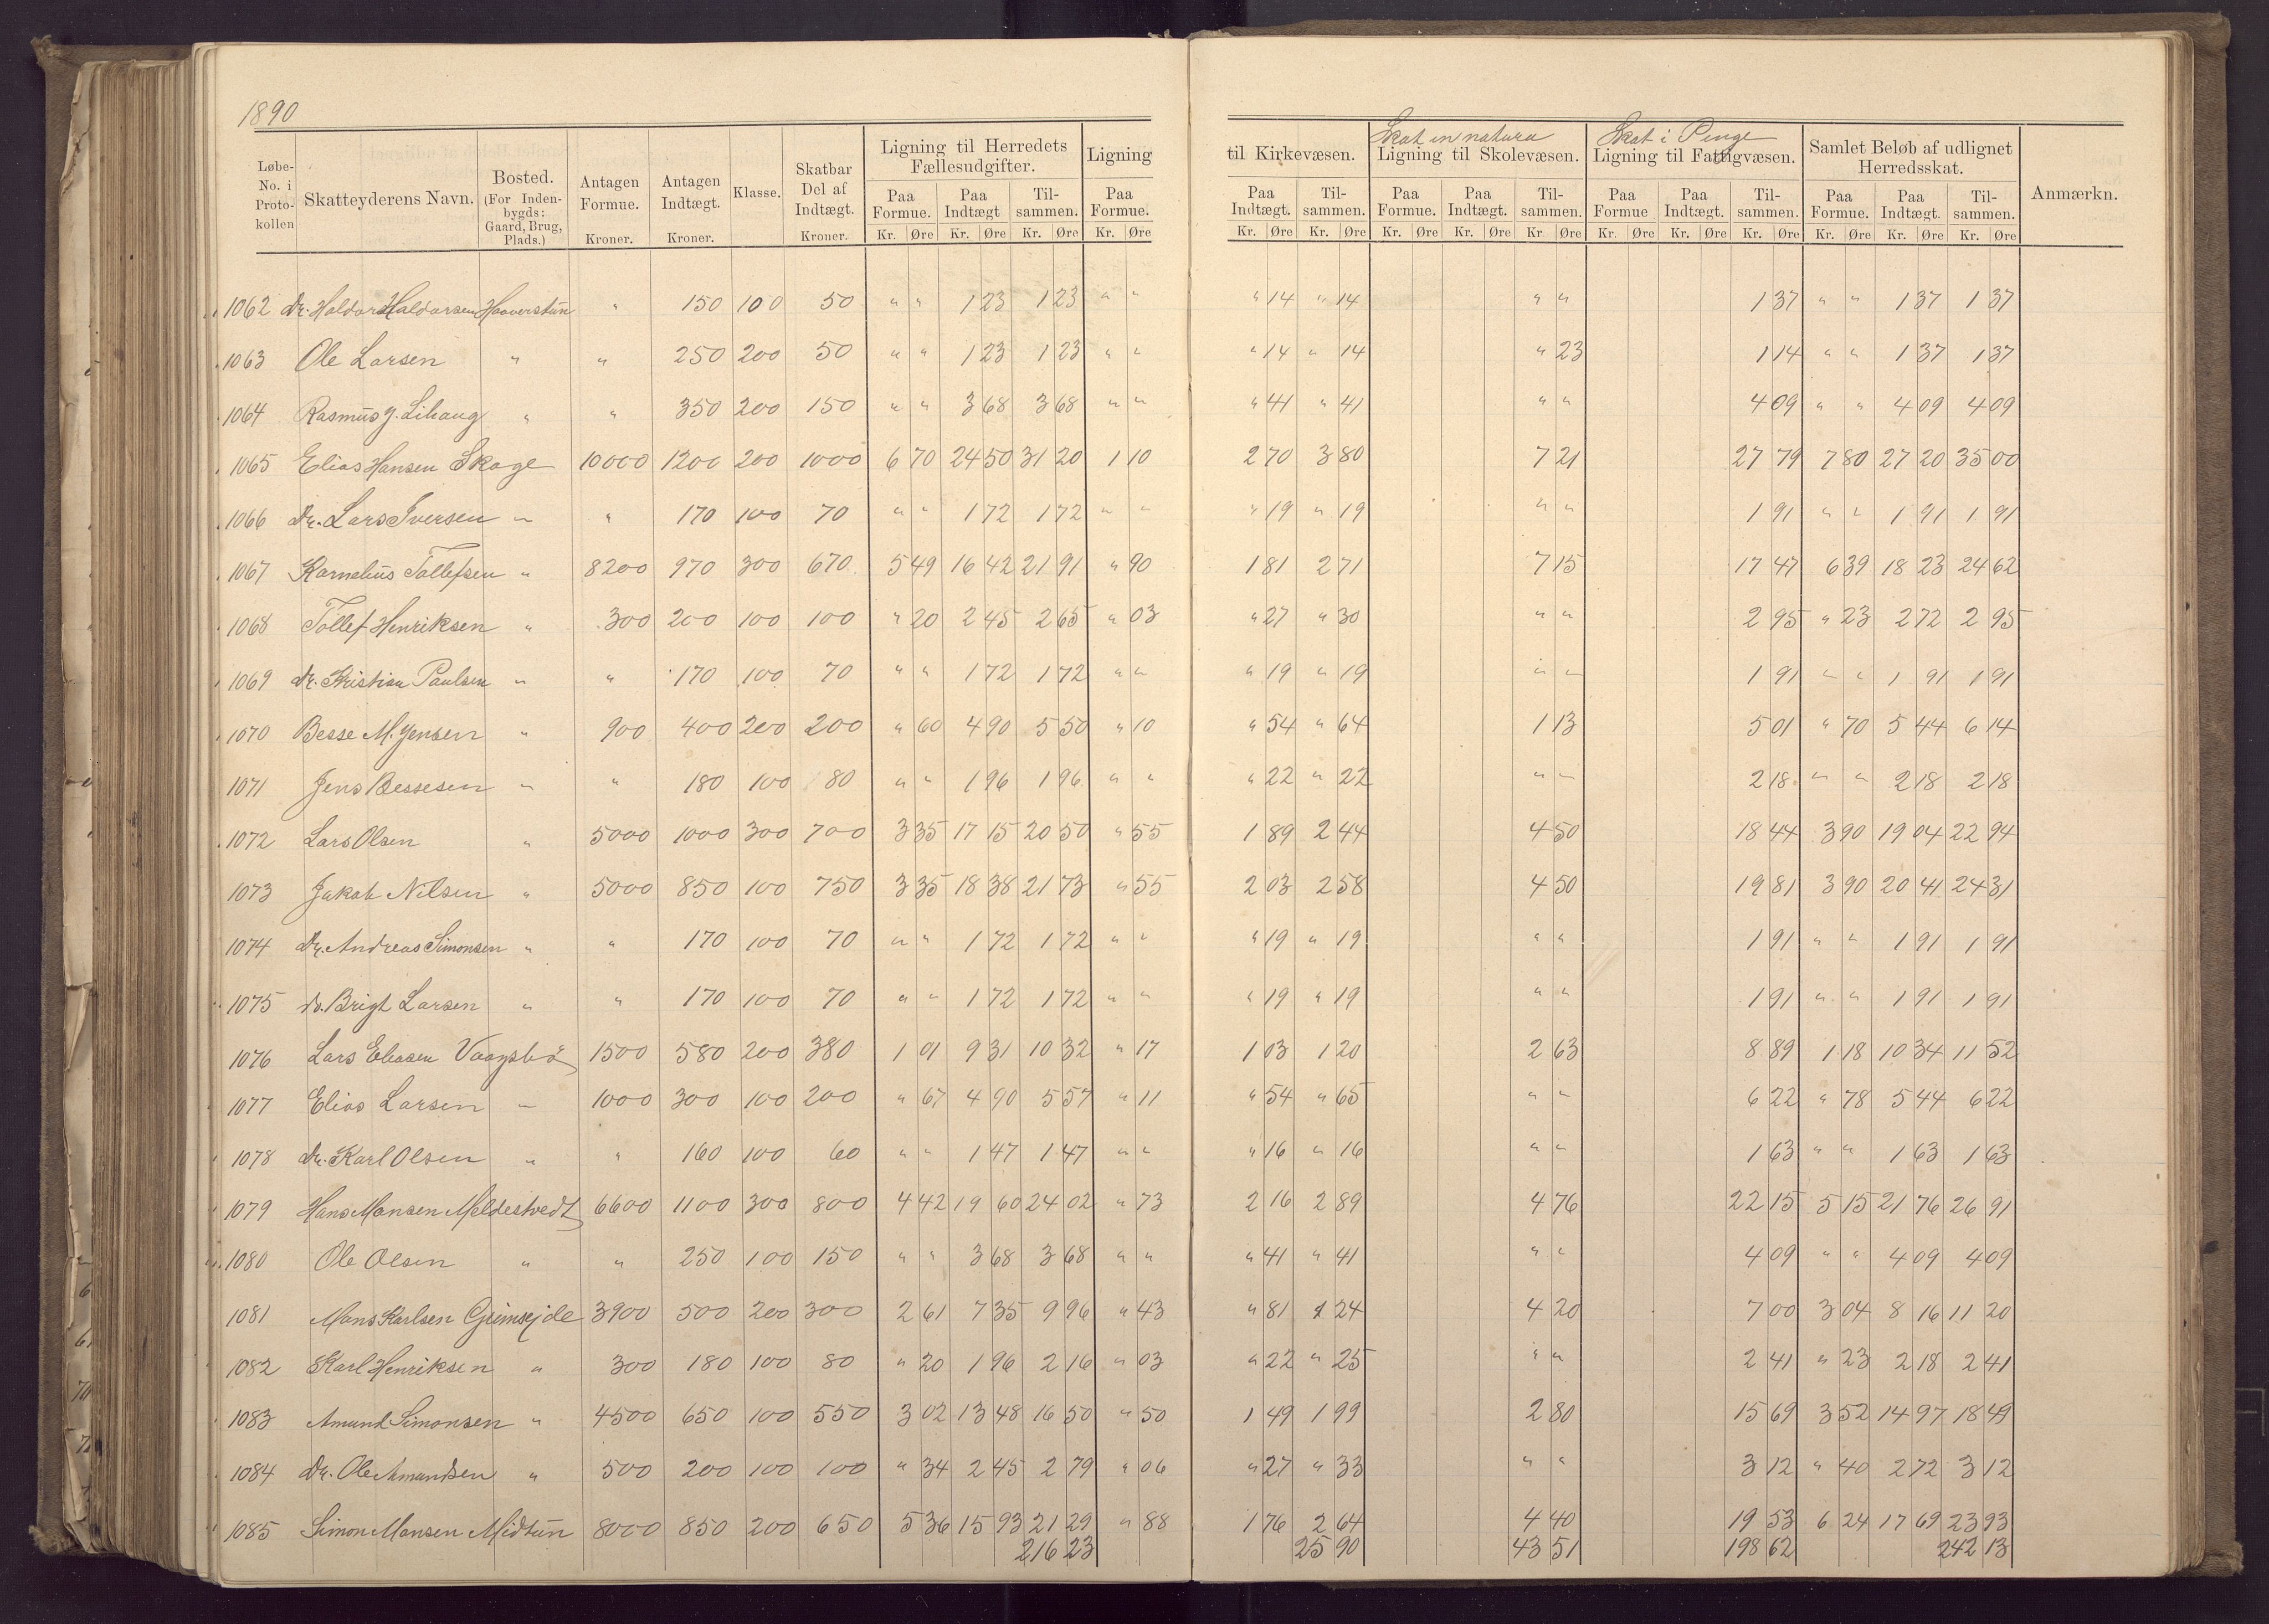 1890
Løbe-No. i Proto-kollen | Skatteyderens Navn. | Bosted. (For Inden-bygds: Gaard, Brug, Plads.) | Antagen Formue. Kroner. | Antagen Indtægt. Kroner. | Klasse. | Skatbar Del af Indtægt. Kroner. | Ligning til Herredets Fællesudgifter. Paa Formue. Kr. Øre | Paa Indtægt Kr. Øre | Til-sammen. Kr. Øre | Ligning Paa Formue. Kr. Øre | til Kirkevæsen. Paa Indtægt. Kr. Øre | Til-sammen. Kr. Øre | Skat in natura Ligning til Skolevæsen. Paa Formue. Kr. Øre | Paa Indtægt. Kr. Øre | Til-sammen. Kr Øre | Skat i Penge Ligning til Fattigvæsen. Paa Formue Kr. Øre | Paa Indtægt. Kr. Øre | Til-sammen. Kr. Øre | Samlet Beløb af udlignet Herredsskat. Paa Formue. Kr. Øre | Paa Indtægt. Kr. Øre | Til-sammen. Kr. Øre | Anmærkn.
1062 Dr. Haldor Haldorsen Haaverstun " 150 100 50 " " 1 23 1 23 " " " 14 " 14 " " 1 37 " " 1 37 1 37
1063 Ole Larsen " " 250 200 50 " " 1 23 1 23 " " " 14 " 14 " 23 1 14 " " 1 37 1 37
1064 Rasmus J. Lihaug " " 350 200 150 " " 3 68 3 68 " " " 41 " 41 " " 4 09 " " 4 09 4 09
1065 Elias Hansen Skage 10000 1200 200 1000 6 70 24 50 31 20 1 10 2 70 3 80 7 21 27 79 7 80 27 20 35 00
1066 Dr. Lars Iversen " " 170 100 70 " " 1 72 1 72 " " " 19 " 19 " " 1 91 " " 1 91 1 91
1067 Kornelius Tollefsen " 8200 970 300 670 5 49 16 42 21 91 " 90 1 81 2 71 7 15 17 47 6 39 18 23 24 62
1068 Tollef Henriksen " 300 200 100 100 " 20 2 45 2 65 " 03 " 27 " 30 " " 2 95 " 23 2 72 2 95
1069 Dr. Kristian Paulsen " " 170 100 70 " " 1 72 1 72 " " " 19 " 19 " " 1 91 " " 1 91 1 91
1070 Besse M. Jensen " 900 400 200 200 " 60 4 90 5 50 " 10 " 54 " 64 1 13 5 01 " 70 5 44 6 14
1071 Jens Bessesen " " 180 100 80 " " 1 96 1 96 " " " 22 " 22 " " 2 18 " " 2 18 2 18
1072 Lars Olsen " 5000 1000 300 700 3 35 17 15 20 50 " 55 1 89 2 44 4 50 18 44 3 90 19 04 22 94
1073 Jakob Nilsen " 5000 850 100 750 3 35 18 38 21 73 " 55 2 03 2 58 4 50 19 81 3 90 20 41 24 31
1074 Dr. Andreas Simonsen " " 170 100 70 " " 1 72 1 72 " " " 19 " 19 " " 1 91 " " 1 91 1 91
1075 Dr. Brigt Larsen " " 170 100 70 " " 1 72 1 72 " " " 19 " 19 " " 1 91 " " 1 91 1 91
1076 Lars Eliasen Vaagsbø 1500 580 200 380 1 01 9 31 10 32 " 17 1 03 1 20 2 63 8 89 1 18 10 34 11 52
1077 Elias Larsen " 1000 300 100 200 " 67 4 90 5 57 " 11 " 54 " 65 " " 6 22 " 78 5 44 6 22
1078 Dr. Karl Olsen " " 160 100 60 " " 1 47 1 47 " " " 16 " 16 " " 1 63 " " 1 63 1 63
1079 Hans Monsen Meldestvedt 6600 1100 300 800 4 42 19 60 24 02 " 73 2 16 2 89 4 76 22 15 5 15 21 76 26 91
1080 Ole Olsen " " 250 100 150 " " 3 68 3 68 " " " 41 " 41 " " 4 09 " " 4 09 4 09
1081 Mons Karlsen Grimsejde 3900 500 200 300 2 61 7 35 9 96 " 43 " 81 1 24 4 20 7 00 3 04 8 16 11 20
1082 Karl Henriksen " 300 180 100 80 " 20 1 96 2 16 " 03 " 22 " 25 " " 2 41 " 23 2 18 2 41
1083 Amund Simonsen " 4500 650 100 550 3 02 13 48 16 50 " 50 1 49 1 99 2 80 15 69 3 52 14 97 18 49
1084 Dr. Ole Amundsen " 500 200 100 100 " 34 2 45 2 79 " 06 " 27 " 33 " " 3 12 " 40 2 72 3 12
1085 Simon Monsen Midtun 8000 850 200 650 5 36 15 93 21 29 " 88 1 76 2 64 4 40 19 53 6 24 17 69 23 93
216 23 25 90 43 51 198 62 242 13